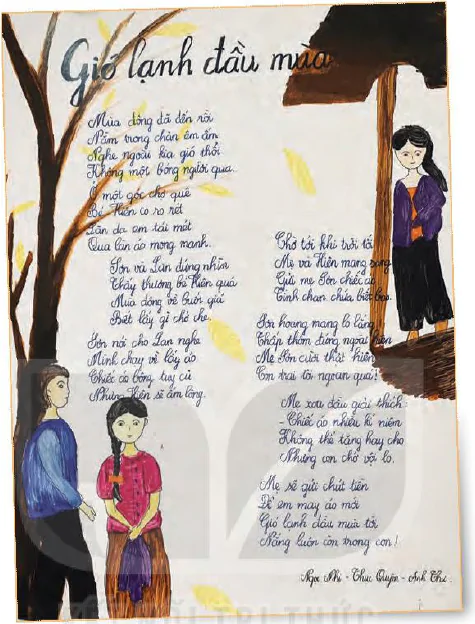 Gió lạnh đầu mùa
Mùa đông đã đến rồi
Nằm trong chăn êm ấm
Nghe ngoài kia gió thổi
Không một bóng người qua.
Ở một góc chợ quê
Bé Hiên co ro rét
Làn da em tái mét
Qua làn áo mong manh.
Sơn và Lan đứng nhìn
Thấy thương bé Hiên quá
Mùa đông về buốt giá
Biết lấy gì chở che.
Sơn nói cho Lan nghe
Mình chạy về lấy áo
Chiếc áo bông tuy cũ
Nhưng Hiên sẽ ấm lòng.
Chờ tới khi trời tối
Mẹ và Hiên mang sang
Gửi mẹ Sơn chiếc áo
Tình chan chứa biết bao.
Sơn hoang mang lo lắng
Thấp thỏm đứng ngoài hiên
Mẹ Sơn cười thật hiền
Con trai tôi ngoan quá!
Mẹ xoa đầu giải thích:
- Chiếc áo nhiều kỉ niệm
Không thể tặng hay cho
Nhưng con chớ vội lo.
Mẹ sẽ gửi chút tiền
Để em may áo mới
Gió lạnh đầu mùa tới
Nắng luôn còn trong con!
Ngọc Nhi - Thục Quyên - Anh Thư
KẾT NỐI TRI THỨC